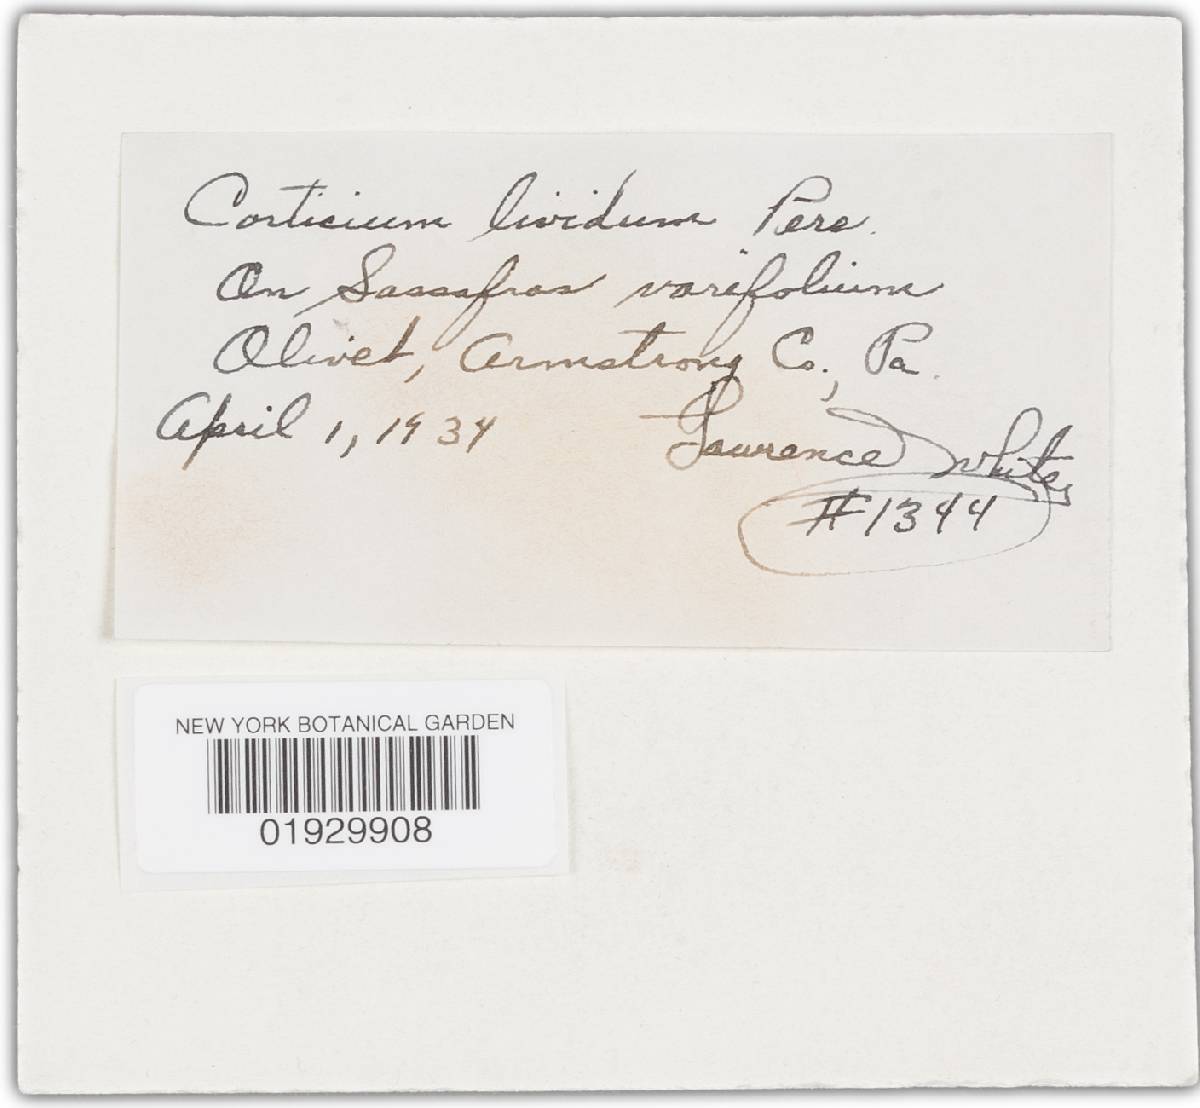 Corticium lividum Pers.
On Sassafras varifolium
Olivet, Armstrong Co., Pa.
April 1, 1934
Lawrence White,
#1344
NEW YORK BOTANICAL GARDEN
01929908